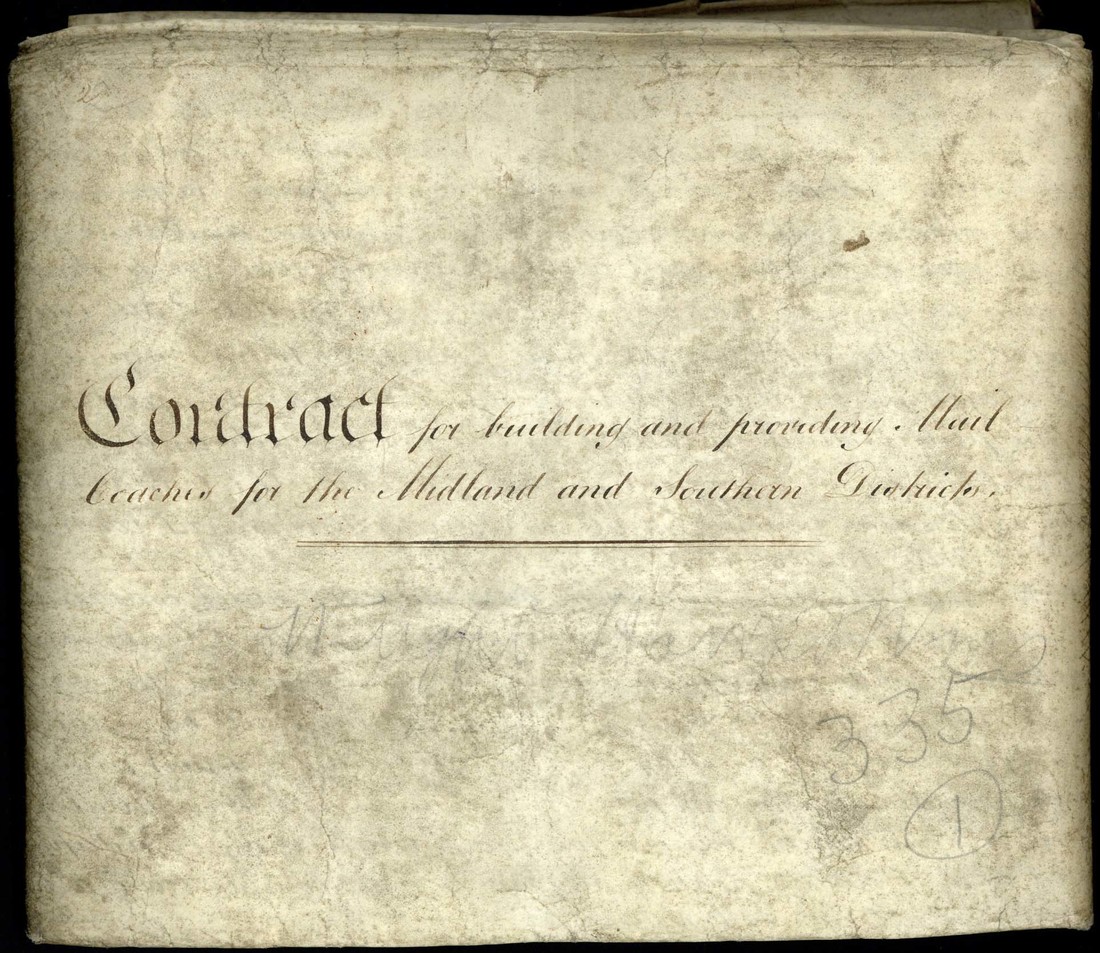 Contract for building and providing Mail
Coaches for the Midland and Southern Districts.
335
1